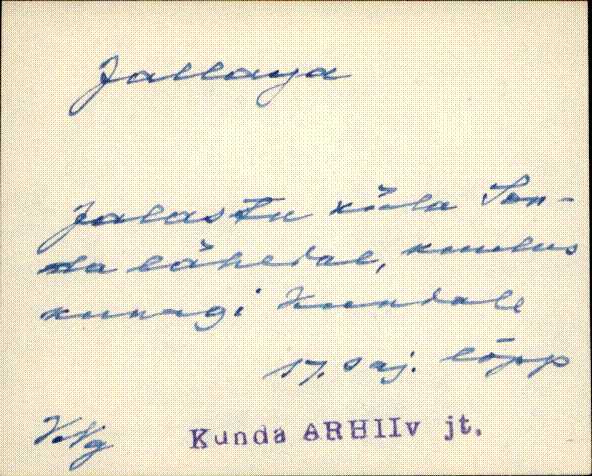 Jallaya
Jalastu küla Son-
da lähedal, kuulus
kunagi Kundale
17. saj. lõpp
V.Ng
Kunda ARHIIv jt.